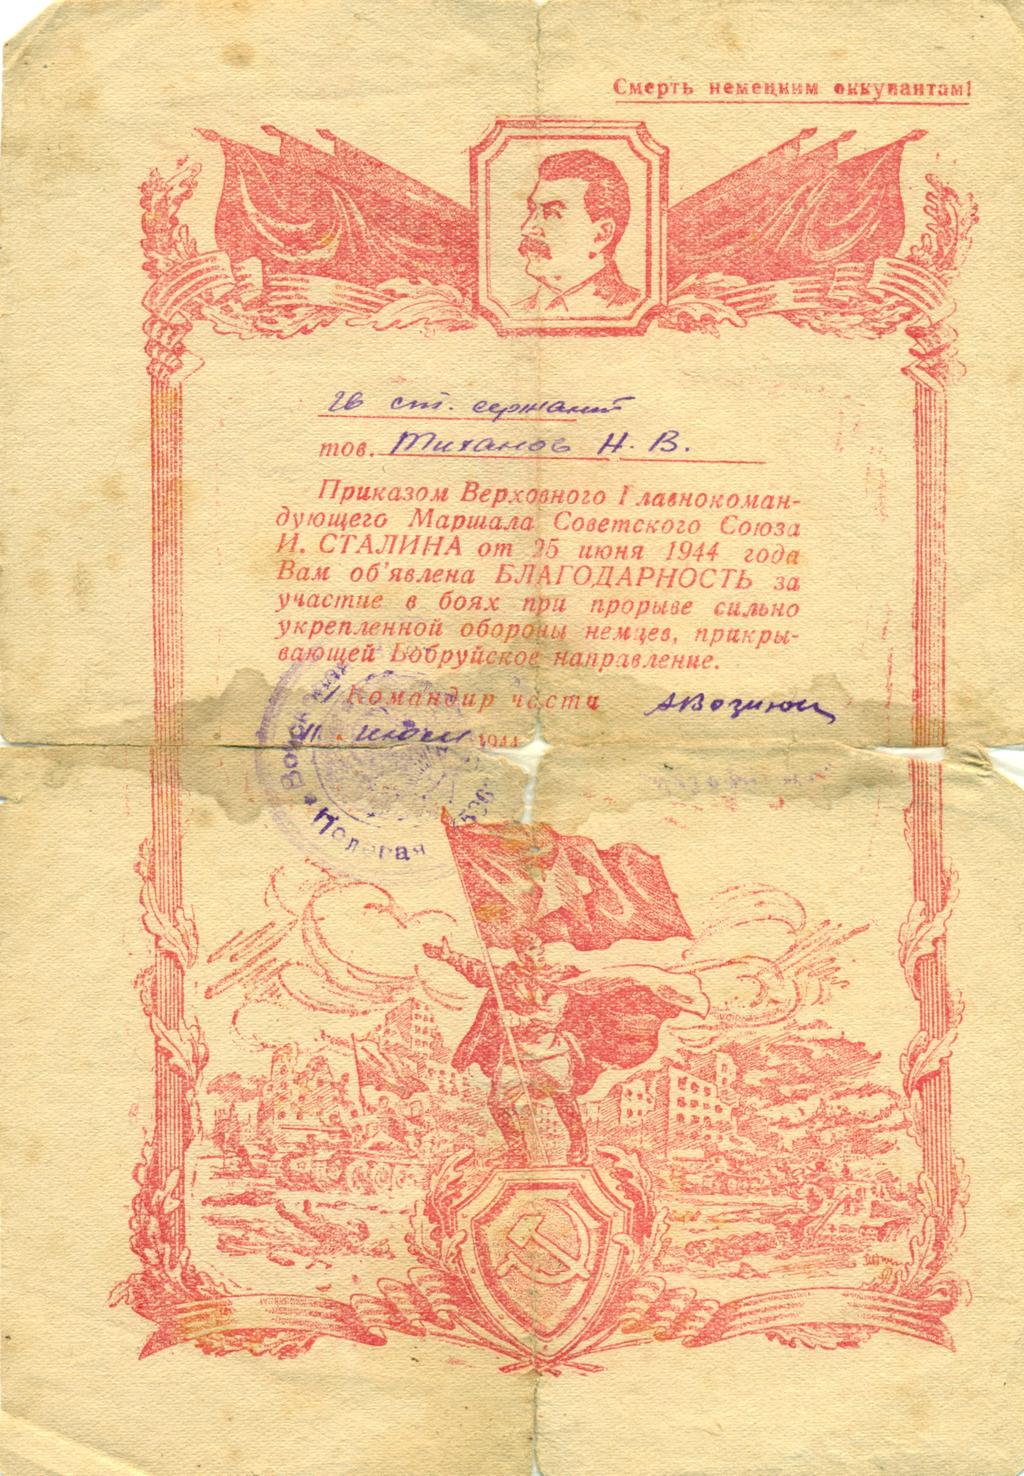 Смерть немецким оккупантам!
гв ст. сержант
тов. Тиханов Н. В.
Приказом Верховного Главнокоман-
дующего Маршала Советского Союза
И. СТАЛИНА от 25 июня 1944 года
Вам об'явлена БЛАГОДАРНОСТЬ за
участие в боях при прорыве сильно
укрепленной обороны немцев, прикры-
вающей Бобруйское направление.
Командир части
11 июля 1944
Полевая